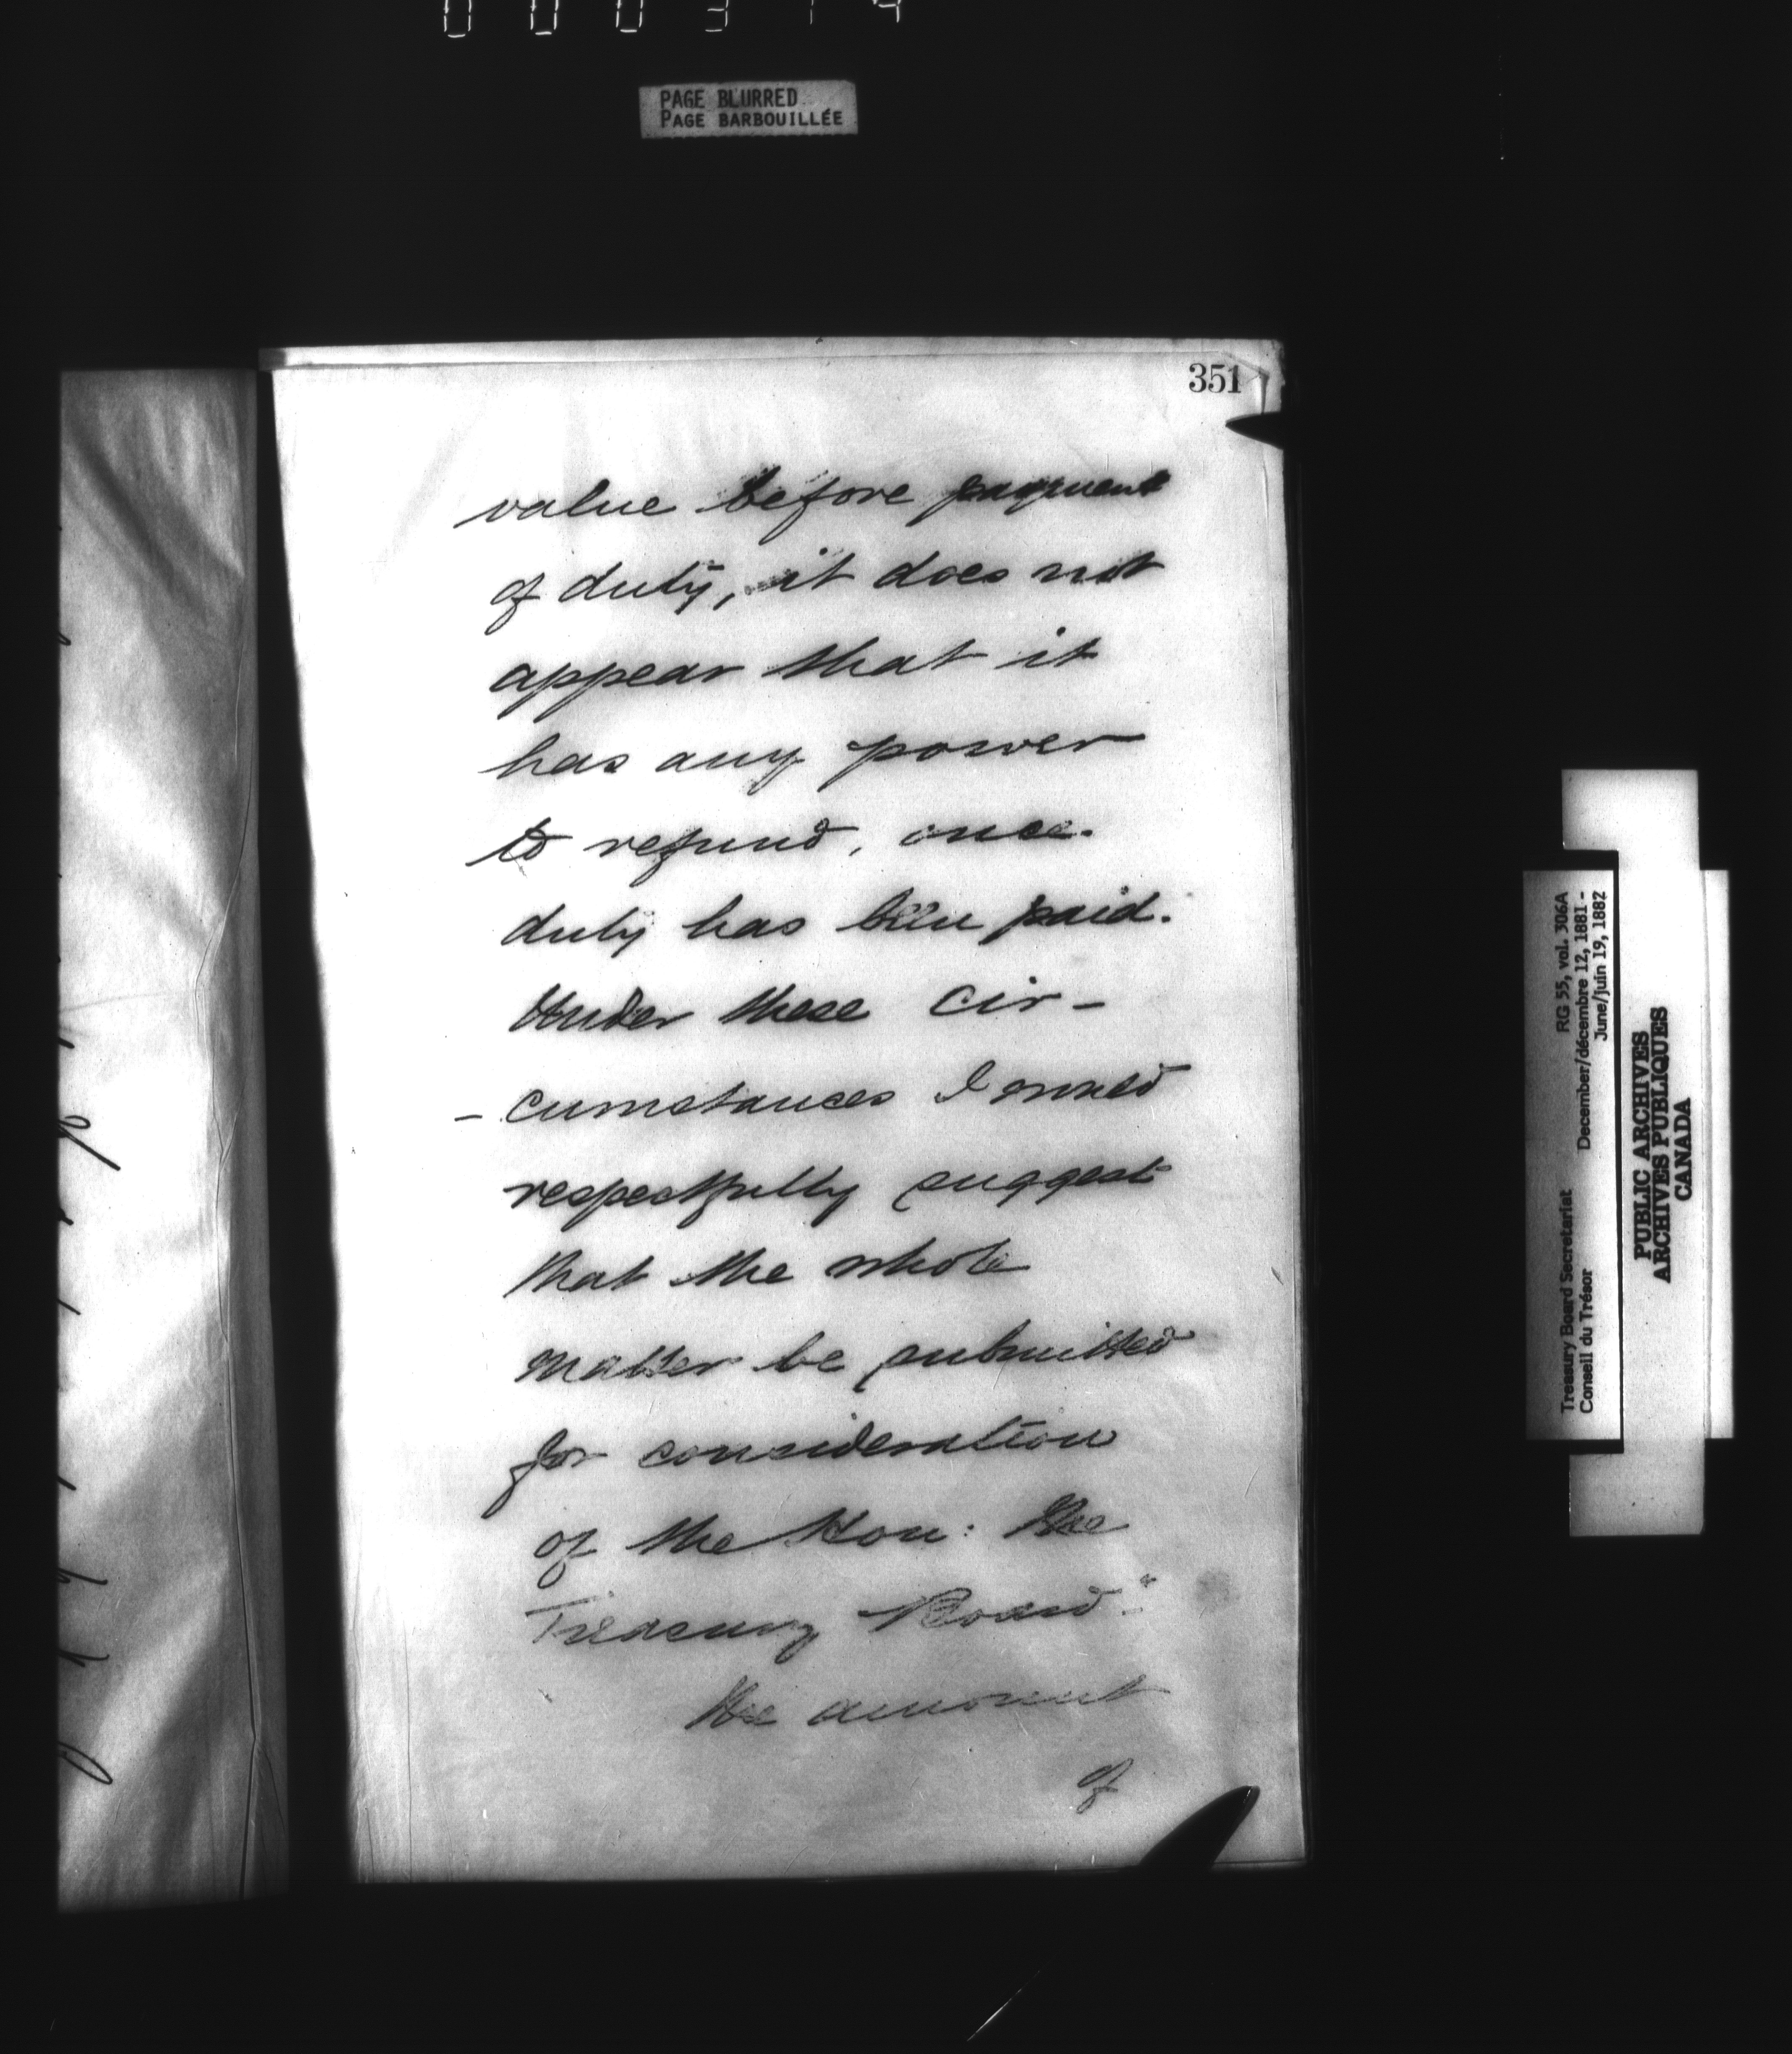 PAGE BLURRED
PAGE BARBOUILLÉE
351
value before payment
of duty, it does not
appear that it
has any power
to refund, once
duty has been paid.
Under these cir-
-cumstances I would
respectfully suggest
that the whole
matter be submitted
for consideration
of the Hon: the
Treasury Board."
The amount
of
Treasury Board Secretariat RG 55, vol. 306A
Conseil du Trésor December/décembre 12, 1881 -
June/juin 19, 1882
PUBLIC ARCHIVES
ARCHIVES PUBLIQUES
CANADA